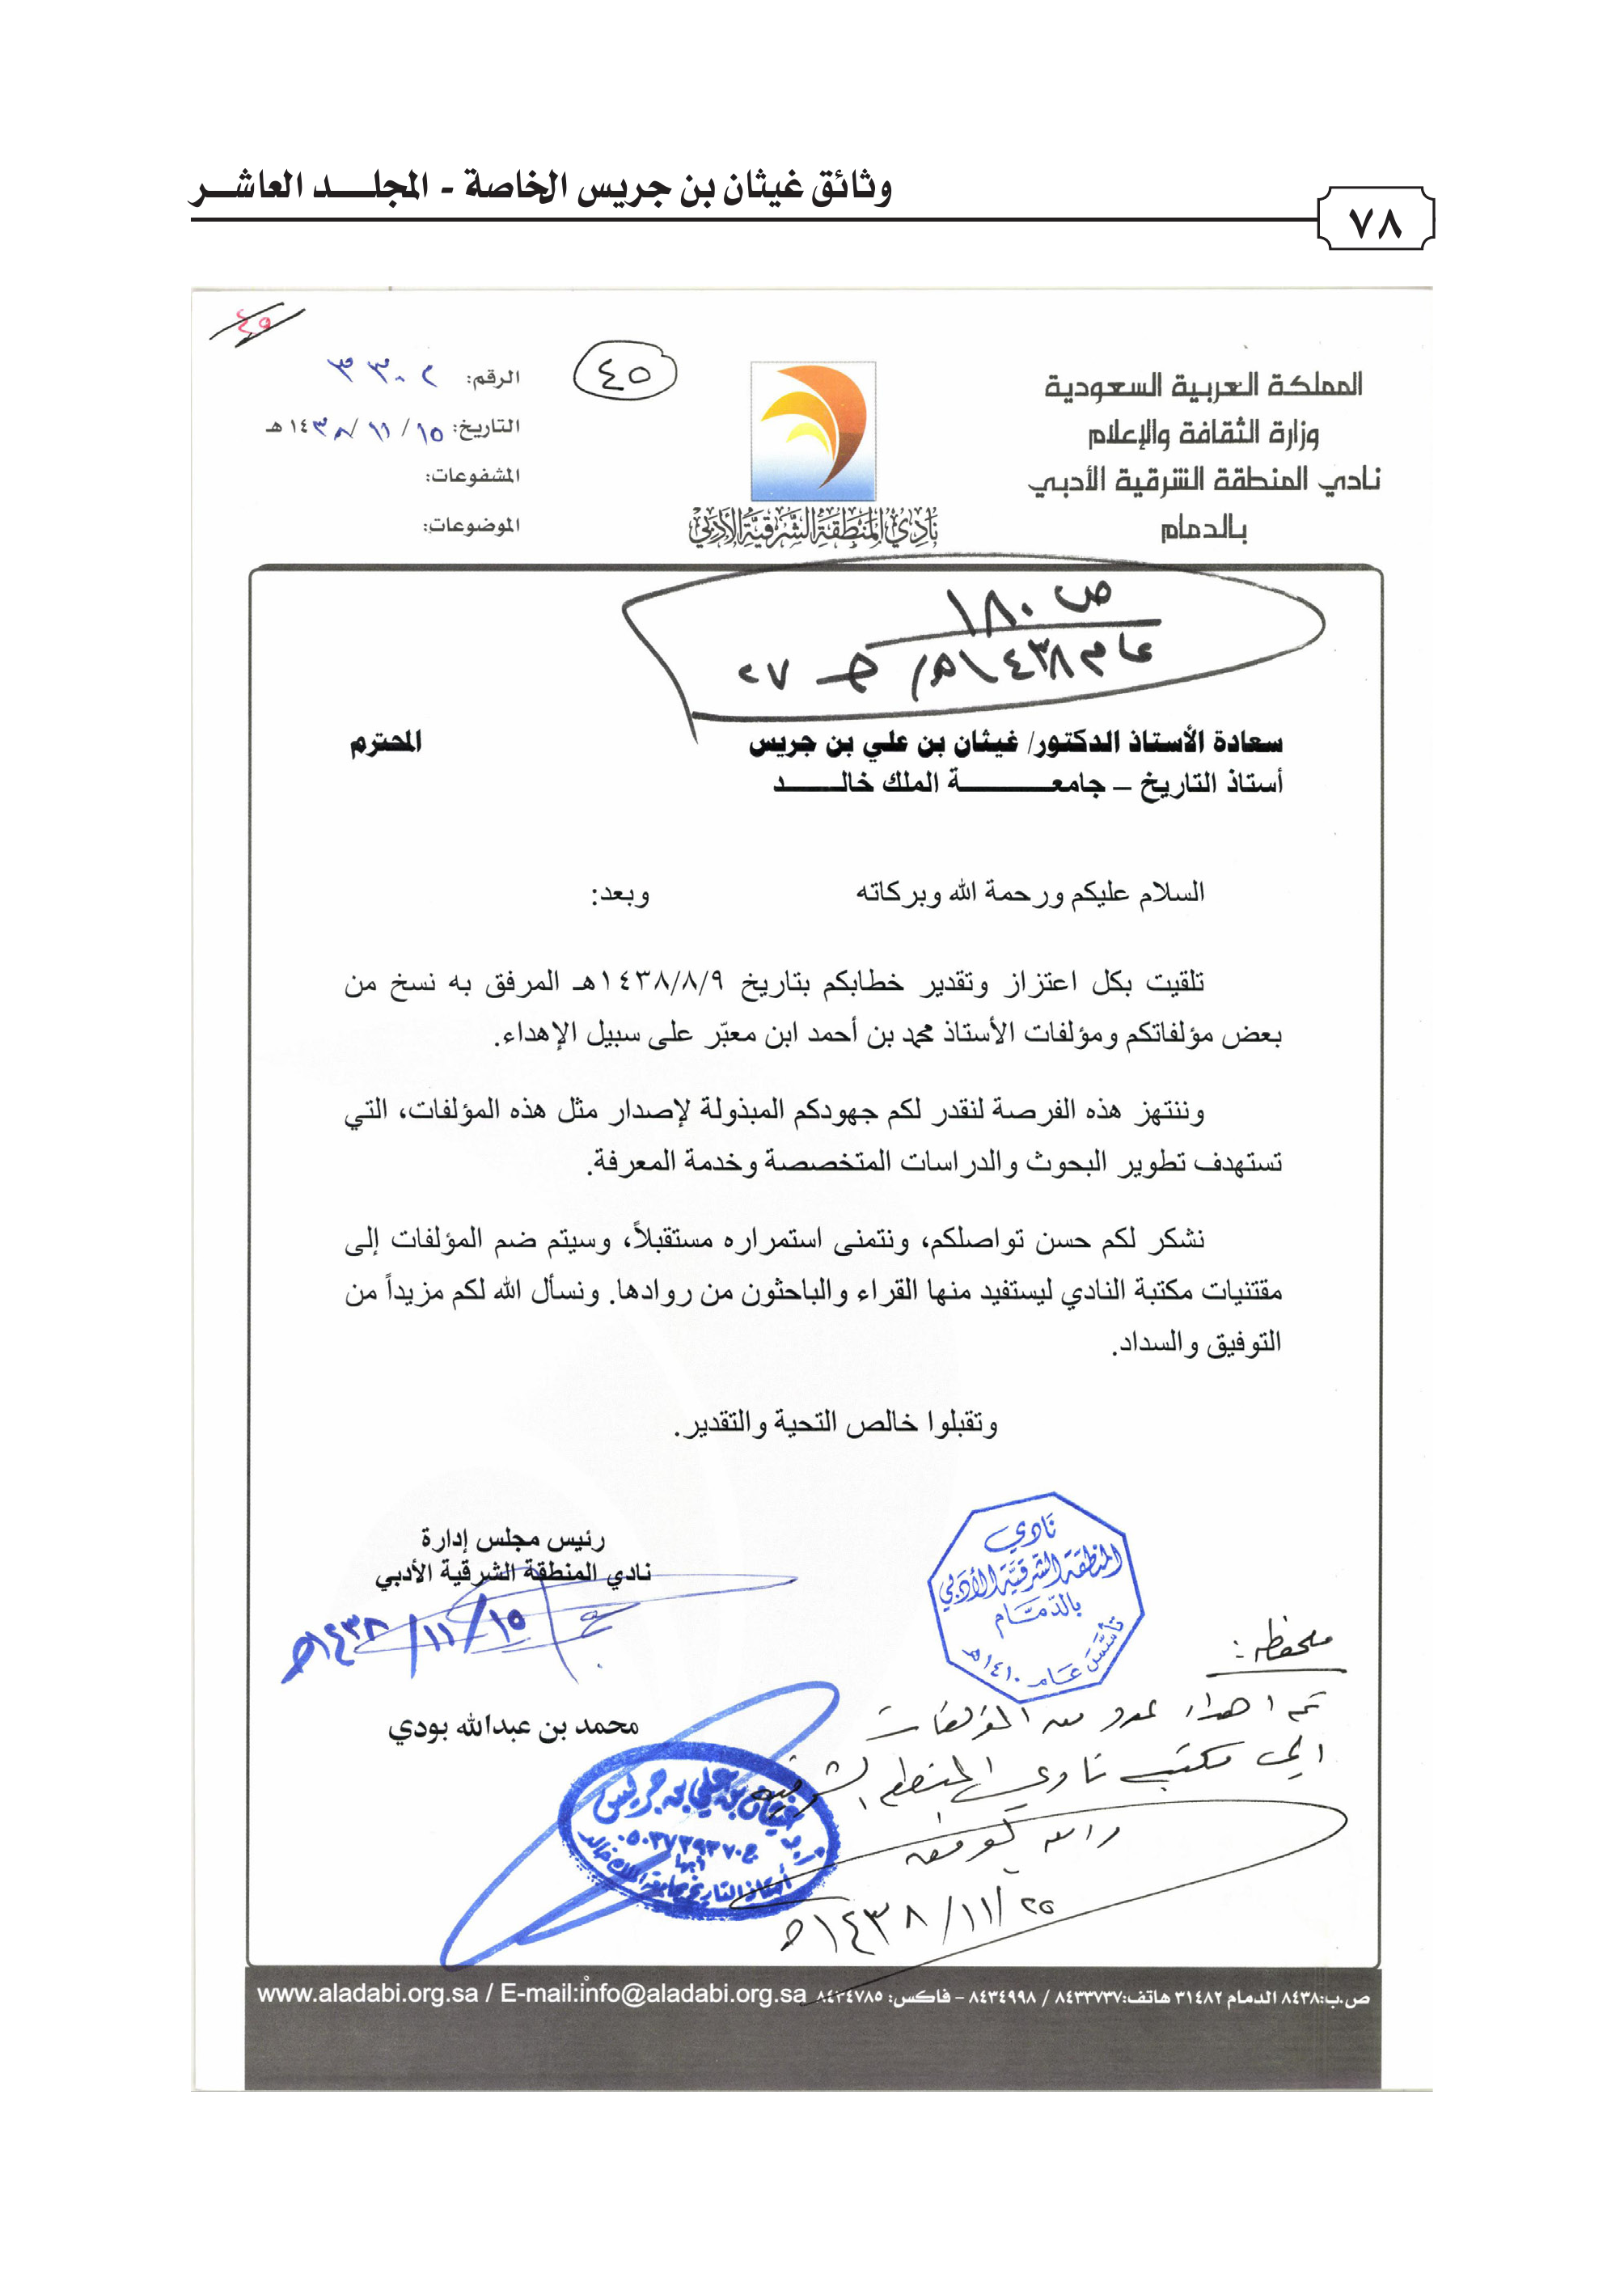 وثائق غيثان بن جريس الخاصة - المجلـــد العاشـــر
٧٨
٤٥
المملكة العربية السعودية
وزارة الثقافة والإعلام
نادي المنطقة الشرقية الأدبي
بالدمام
نادي المنطقة الشرقية الأدبي
٤٥
الرقم: ٣٣٠٢
التاريخ: ١٥/ ١١/ ١٤٣٨ هـ
المشفوعات:
الموضوعات:
ص ١٨٠
عام ١٤٣٨هـ / ج ٢٧
سعادة الأستاذ الدكتور/ غيثان بن علي بن جريس المحترم
أستاذ التاريخ – جامعـــــة الملك خالــــد
السلام عليكم ورحمة الله وبركاته وبعد:
تلقيت بكل اعتزاز وتقدير خطابكم بتاريخ ١٤٣٨/٨/٩هـ المرفق به نسخ من
بعض مؤلفاتكم ومؤلفات الأستاذ محمد بن أحمد ابن معبّر على سبيل الإهداء.
وننتهز هذه الفرصة لنقدر لكم جهودكم المبذولة لإصدار مثل هذه المؤلفات، التي
تستهدف تطوير البحوث والدراسات المتخصصة وخدمة المعرفة.
نشكر لكم حسن تواصلكم، ونتمنى استمراره مستقبلاً، وسيتم ضم المؤلفات إلى
مقتنيات مكتبة النادي ليستفيد منها القراء والباحثون من روادها. ونسأل الله لكم مزيداً من
التوفيق والسداد.
وتقبلوا خالص التحية والتقدير.
رئيس مجلس إدارة
نادي المنطقة الشرقية الأدبي
١٥/ ١١/ ١٤٣٨هـ
محمد بن عبدالله بودي
نادي
المنطقة الشرقية الأدبي
بالدمام
تأسس عام ١٤١٠هـ
ملحظه:
تم اهداء عدد من المؤلفات
الى مكتبة نادي المنطقة الشرقية
والله الموفق
٢٥/ ١١/ ١٤٣٨هـ
غيثان بن علي بن جريس
ج٠٥٠٣٧٣٩٣٧٠
أبها
أستاذ التاريخ بجامعة الملك خالد
ص.ب:٨٤٣٨ الدمام ٣١٤٨٢ هاتف:٨٤٣٣٧٣٧ / ٨٤٣٤٩٩٨ – فاكس: ٨٤٣٤٧٨٥ www.aladabi.org.sa / E-mail:info@aladabi.org.sa